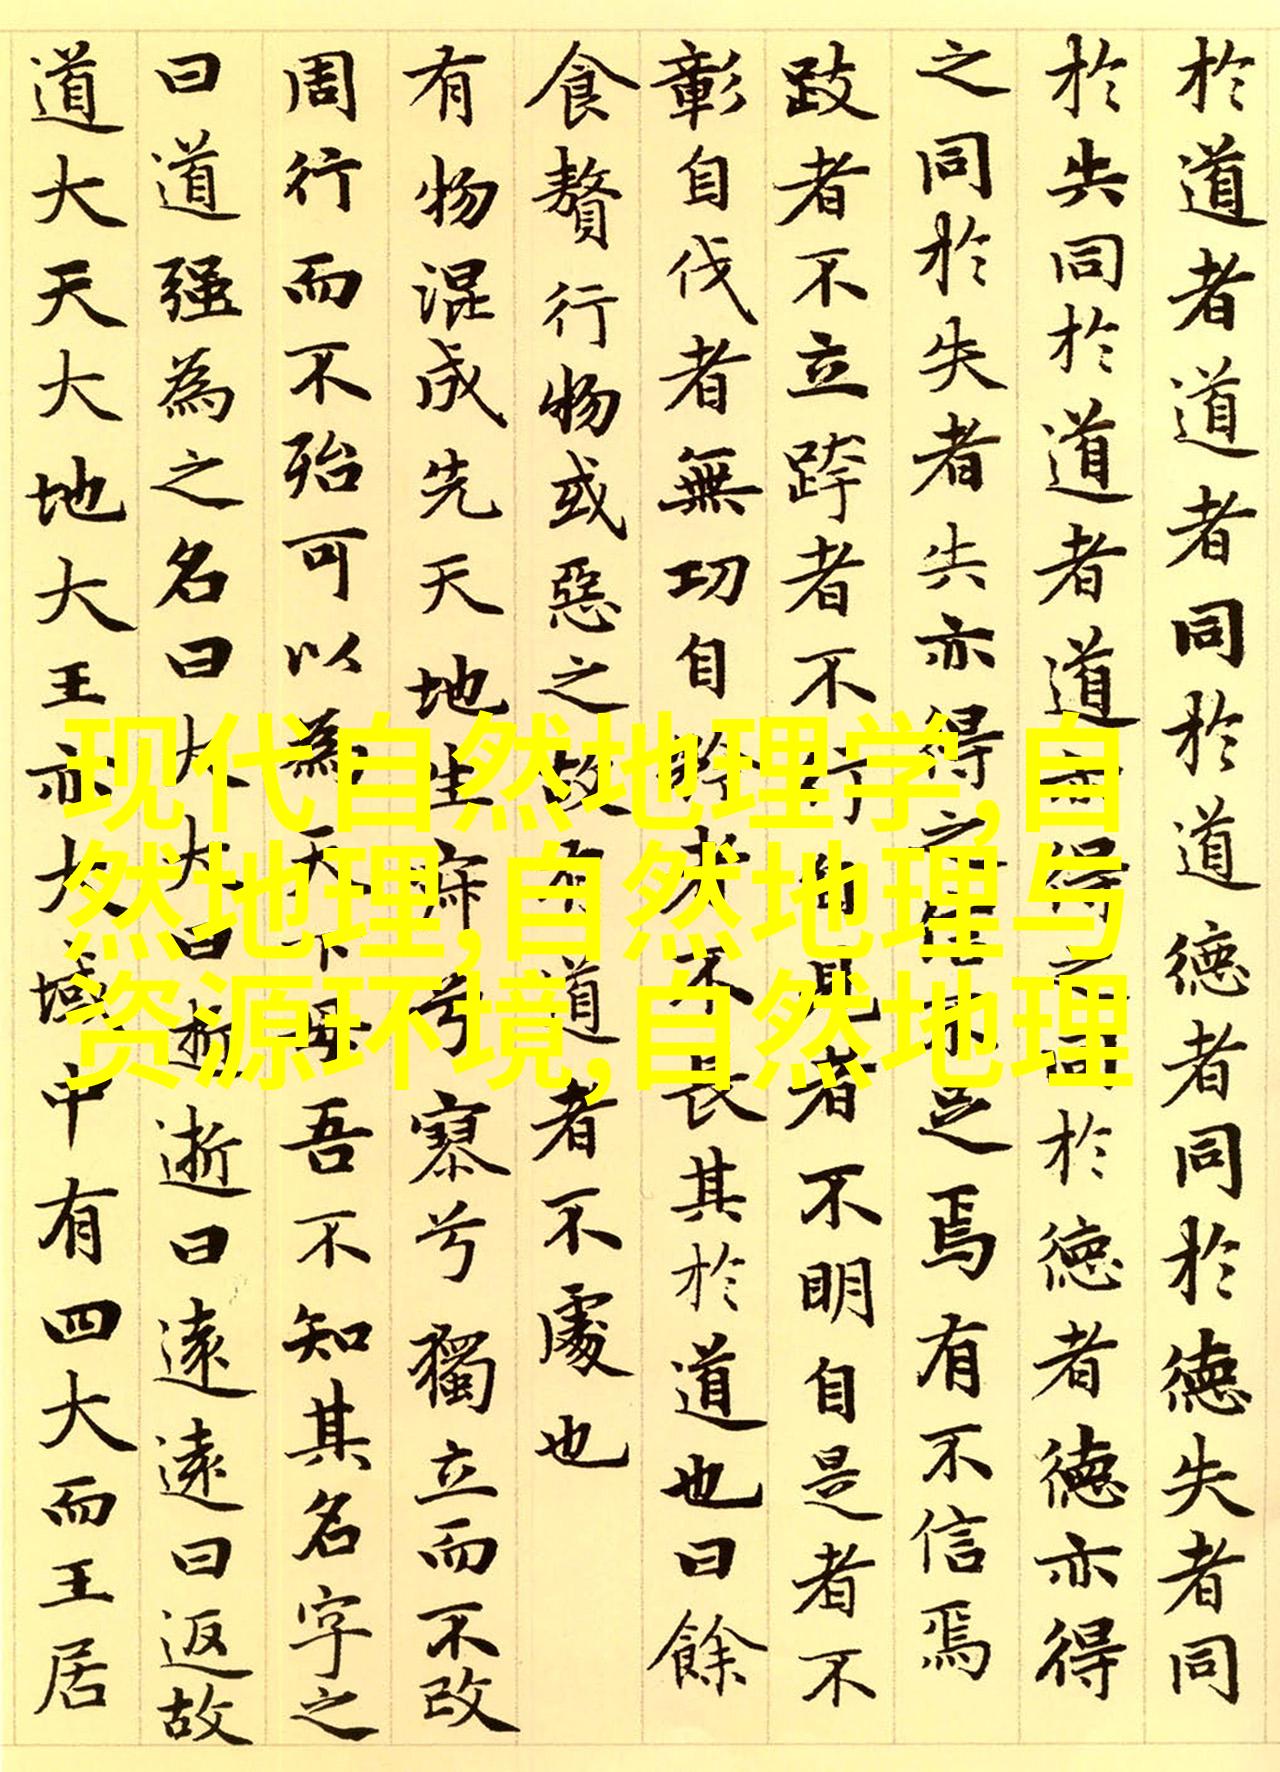 於道者道者同於道德者同於德失者同
於失同於道者道亦得之同於德者德亦得
之同於失者失亦得之信不足焉有不信焉
跂者不立跨者不行自見者不明自是者不
彰自伐者無功自矜者不長其於道也曰餘
食贅行物或惡之故有道者不處也
有物混成先天地生寂兮寥兮獨立而不改
周行而不殆可以為天下母吾不知其名字之
曰道强為之名曰大大曰逝逝曰遠遠曰返故
道大天大地大王亦大域中有四大而王居
现代自然地理学,自
然地理,自然地理与
资源环境,自然地理